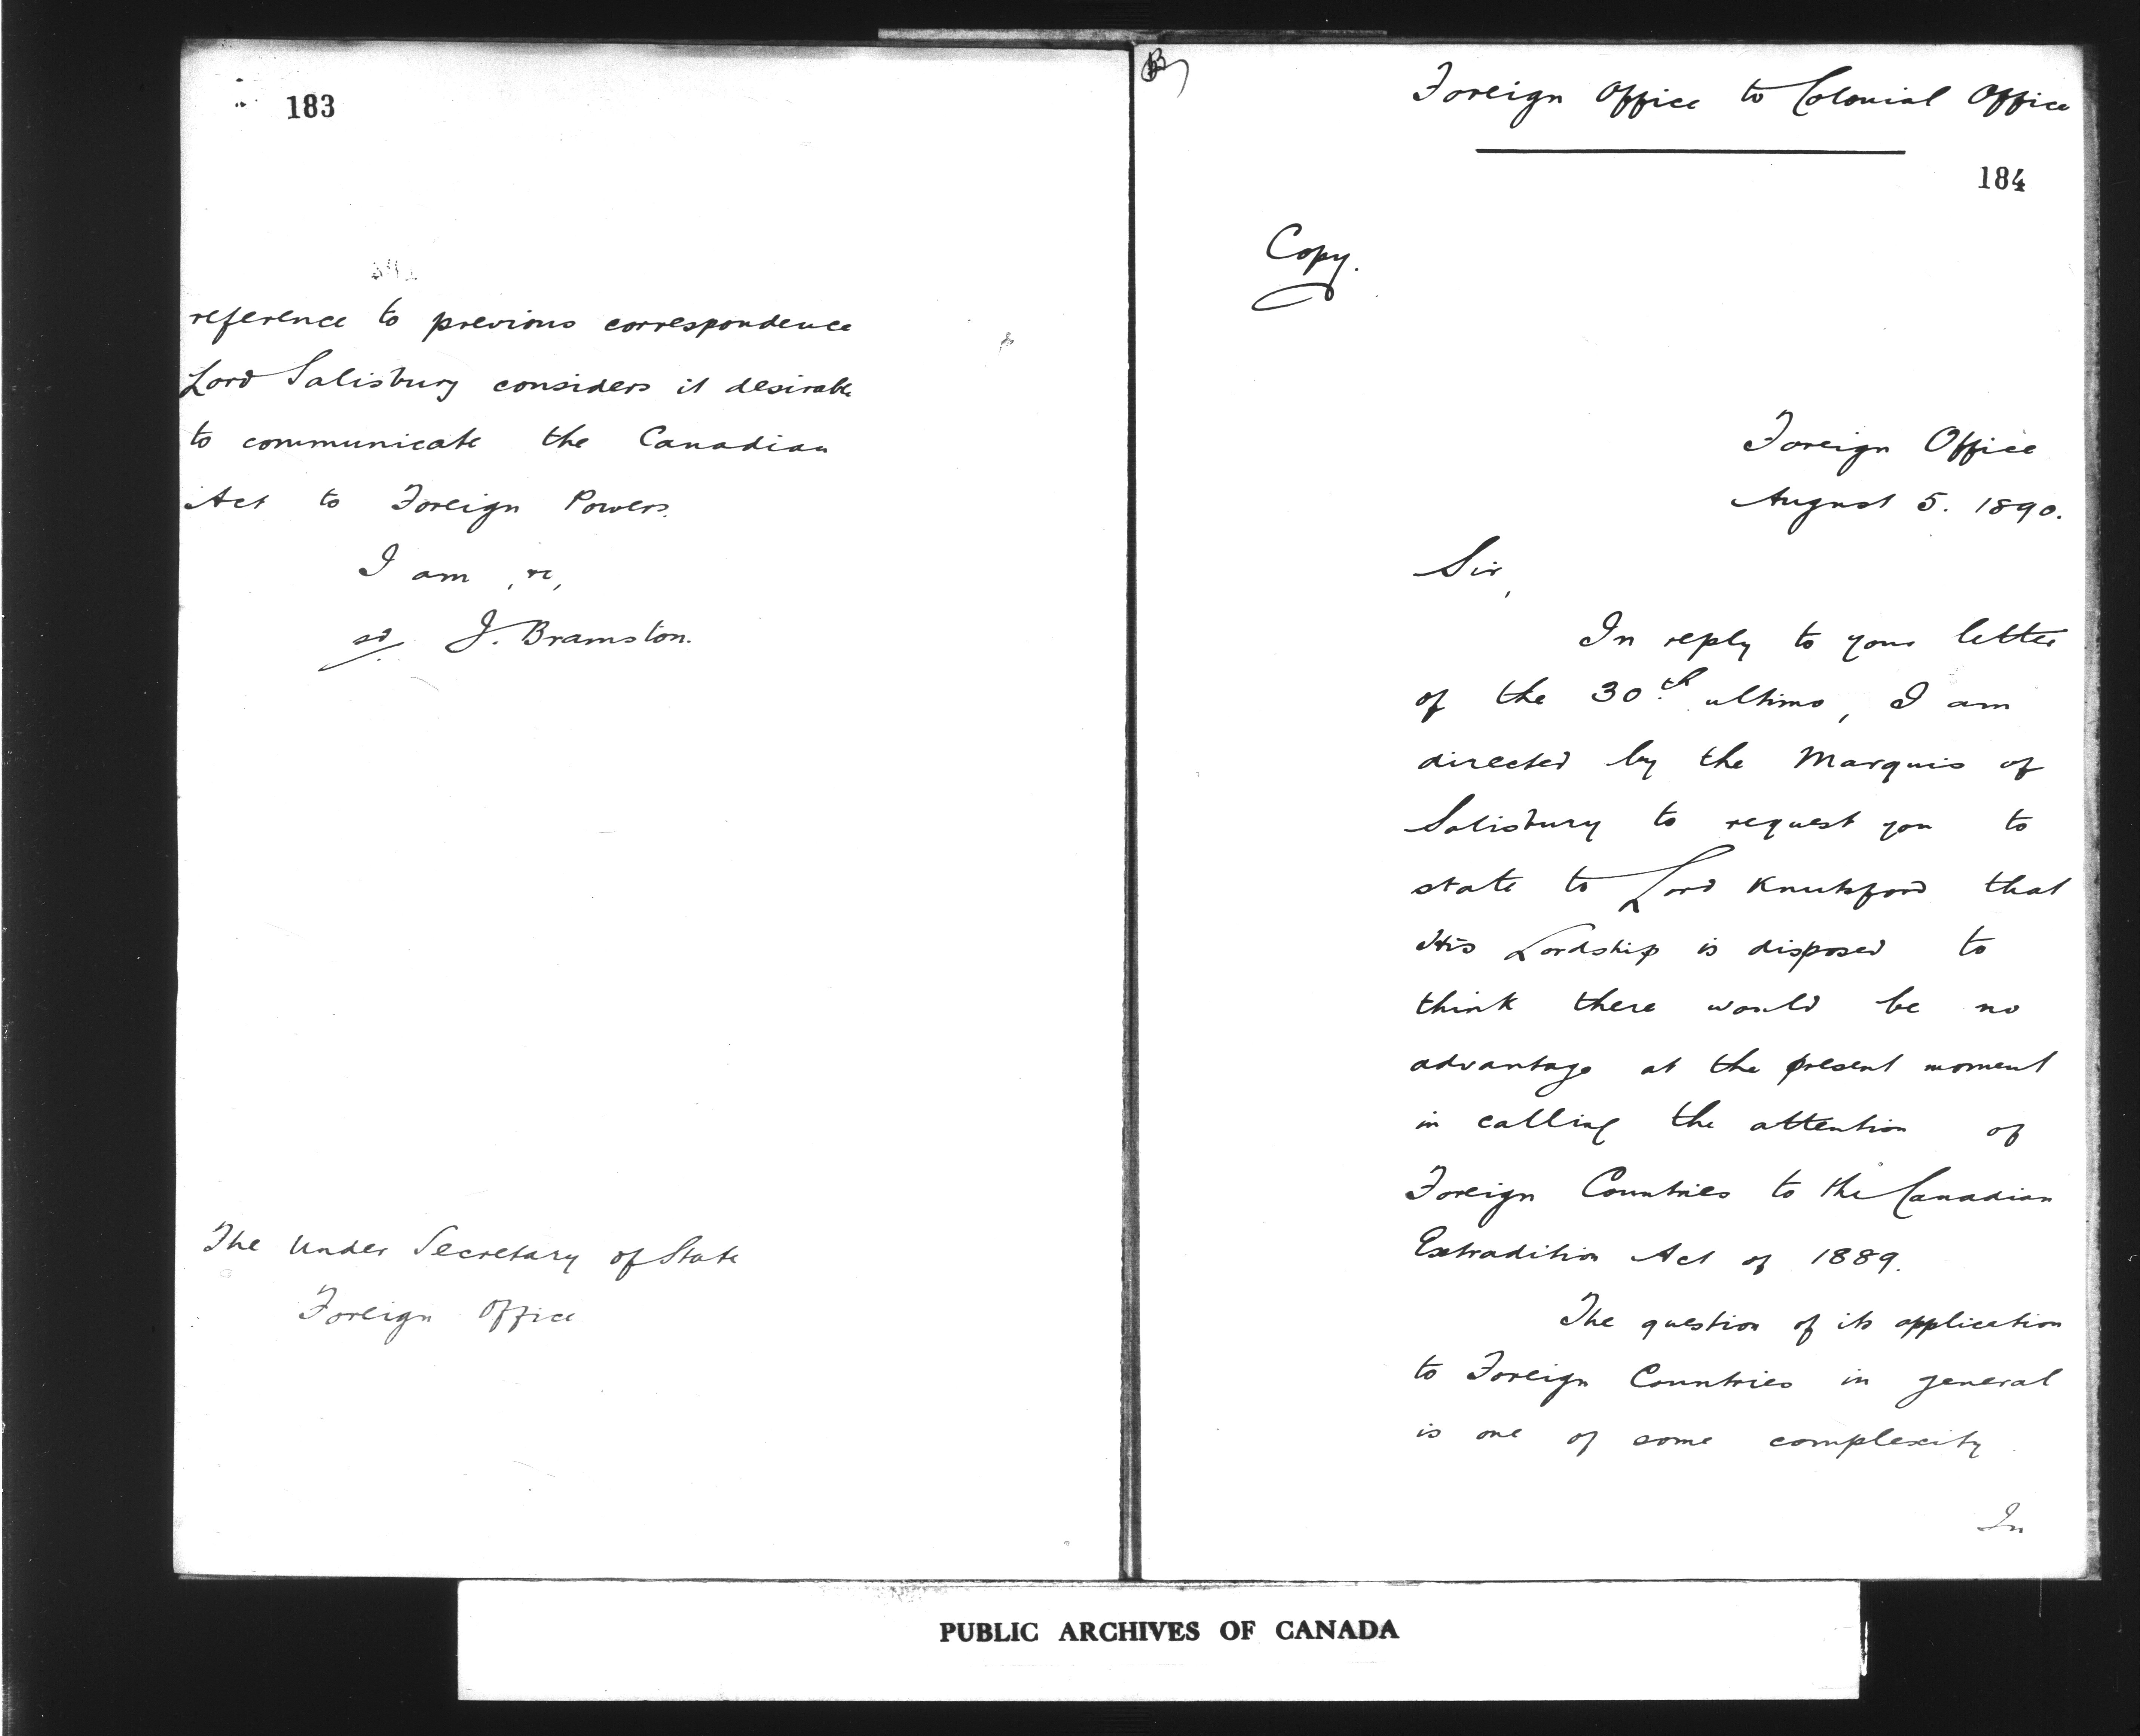 183
reference to previous correspondence
Lord Salisbury considers it desirable
to communicate the Canadian
Act to Foreign Powers.
I am, &c,
sd J. Bramston.
The Under Secretary of State
Foreign Office
Foreign Office to Colonial Office
184
Copy.
Foreign Office
August 5. 1890.
Sir,
In reply to your letter
of the 30th ultimo, I am
directed by the Marquis of
Salisbury to request you to
state to Lord Knutsford that
His Lordship is disposed to
think there would be no
advantage at the present moment
in calling the attention of
Foreign Countries to the Canadian
Extradition Act of 1889.
The question of its application
to Foreign Countries in general
is one of some complexity
In
PUBLIC ARCHIVES OF CANADA